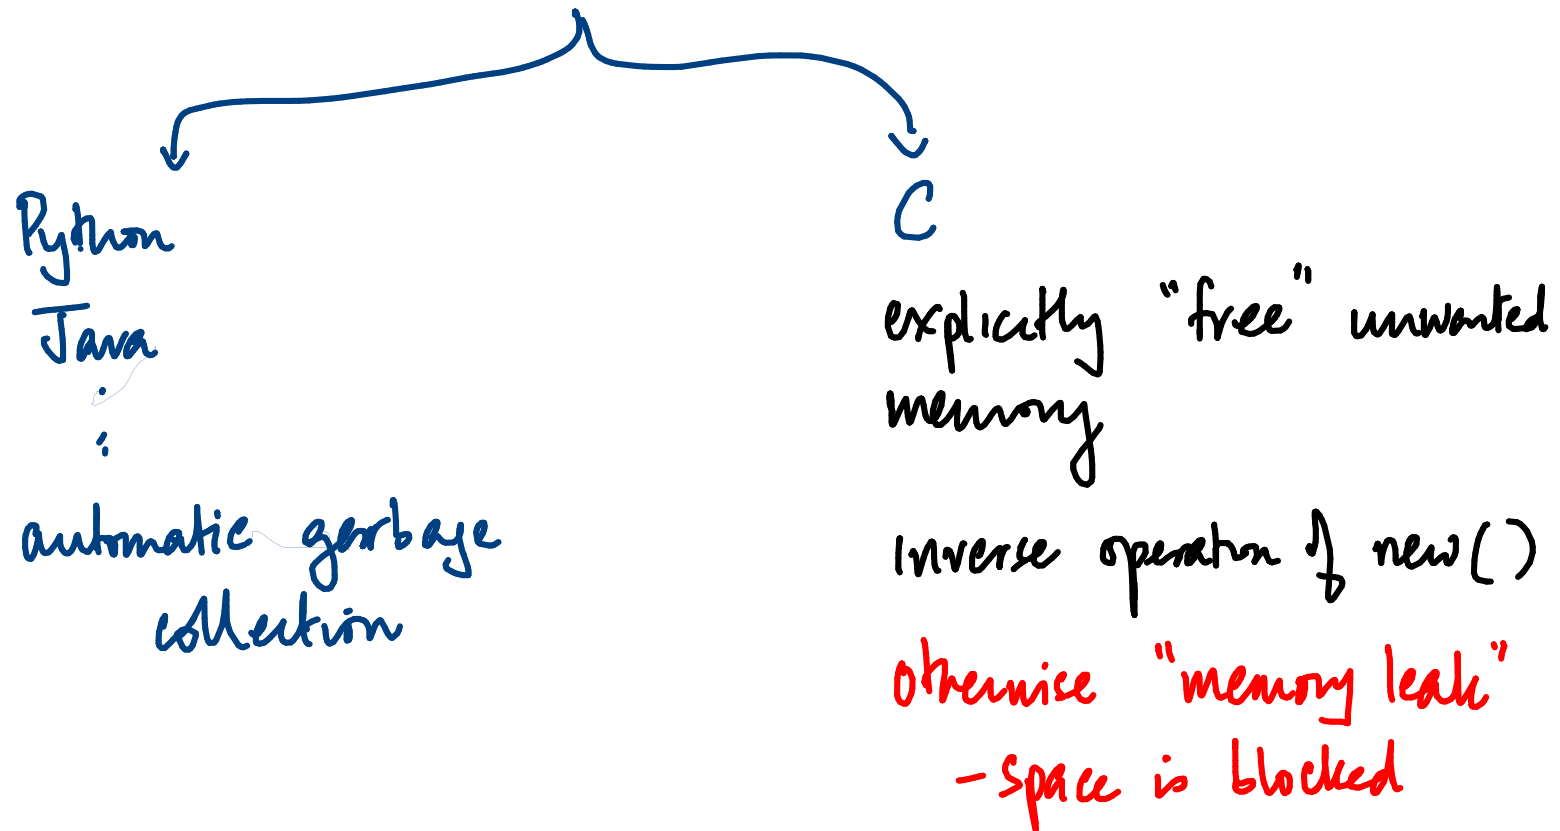 Python
Java
:
automatic garbage
collection
C
explicitly "free" unwanted
memory
inverse operation of new()
otherwise "memory leak"
- space is blocked